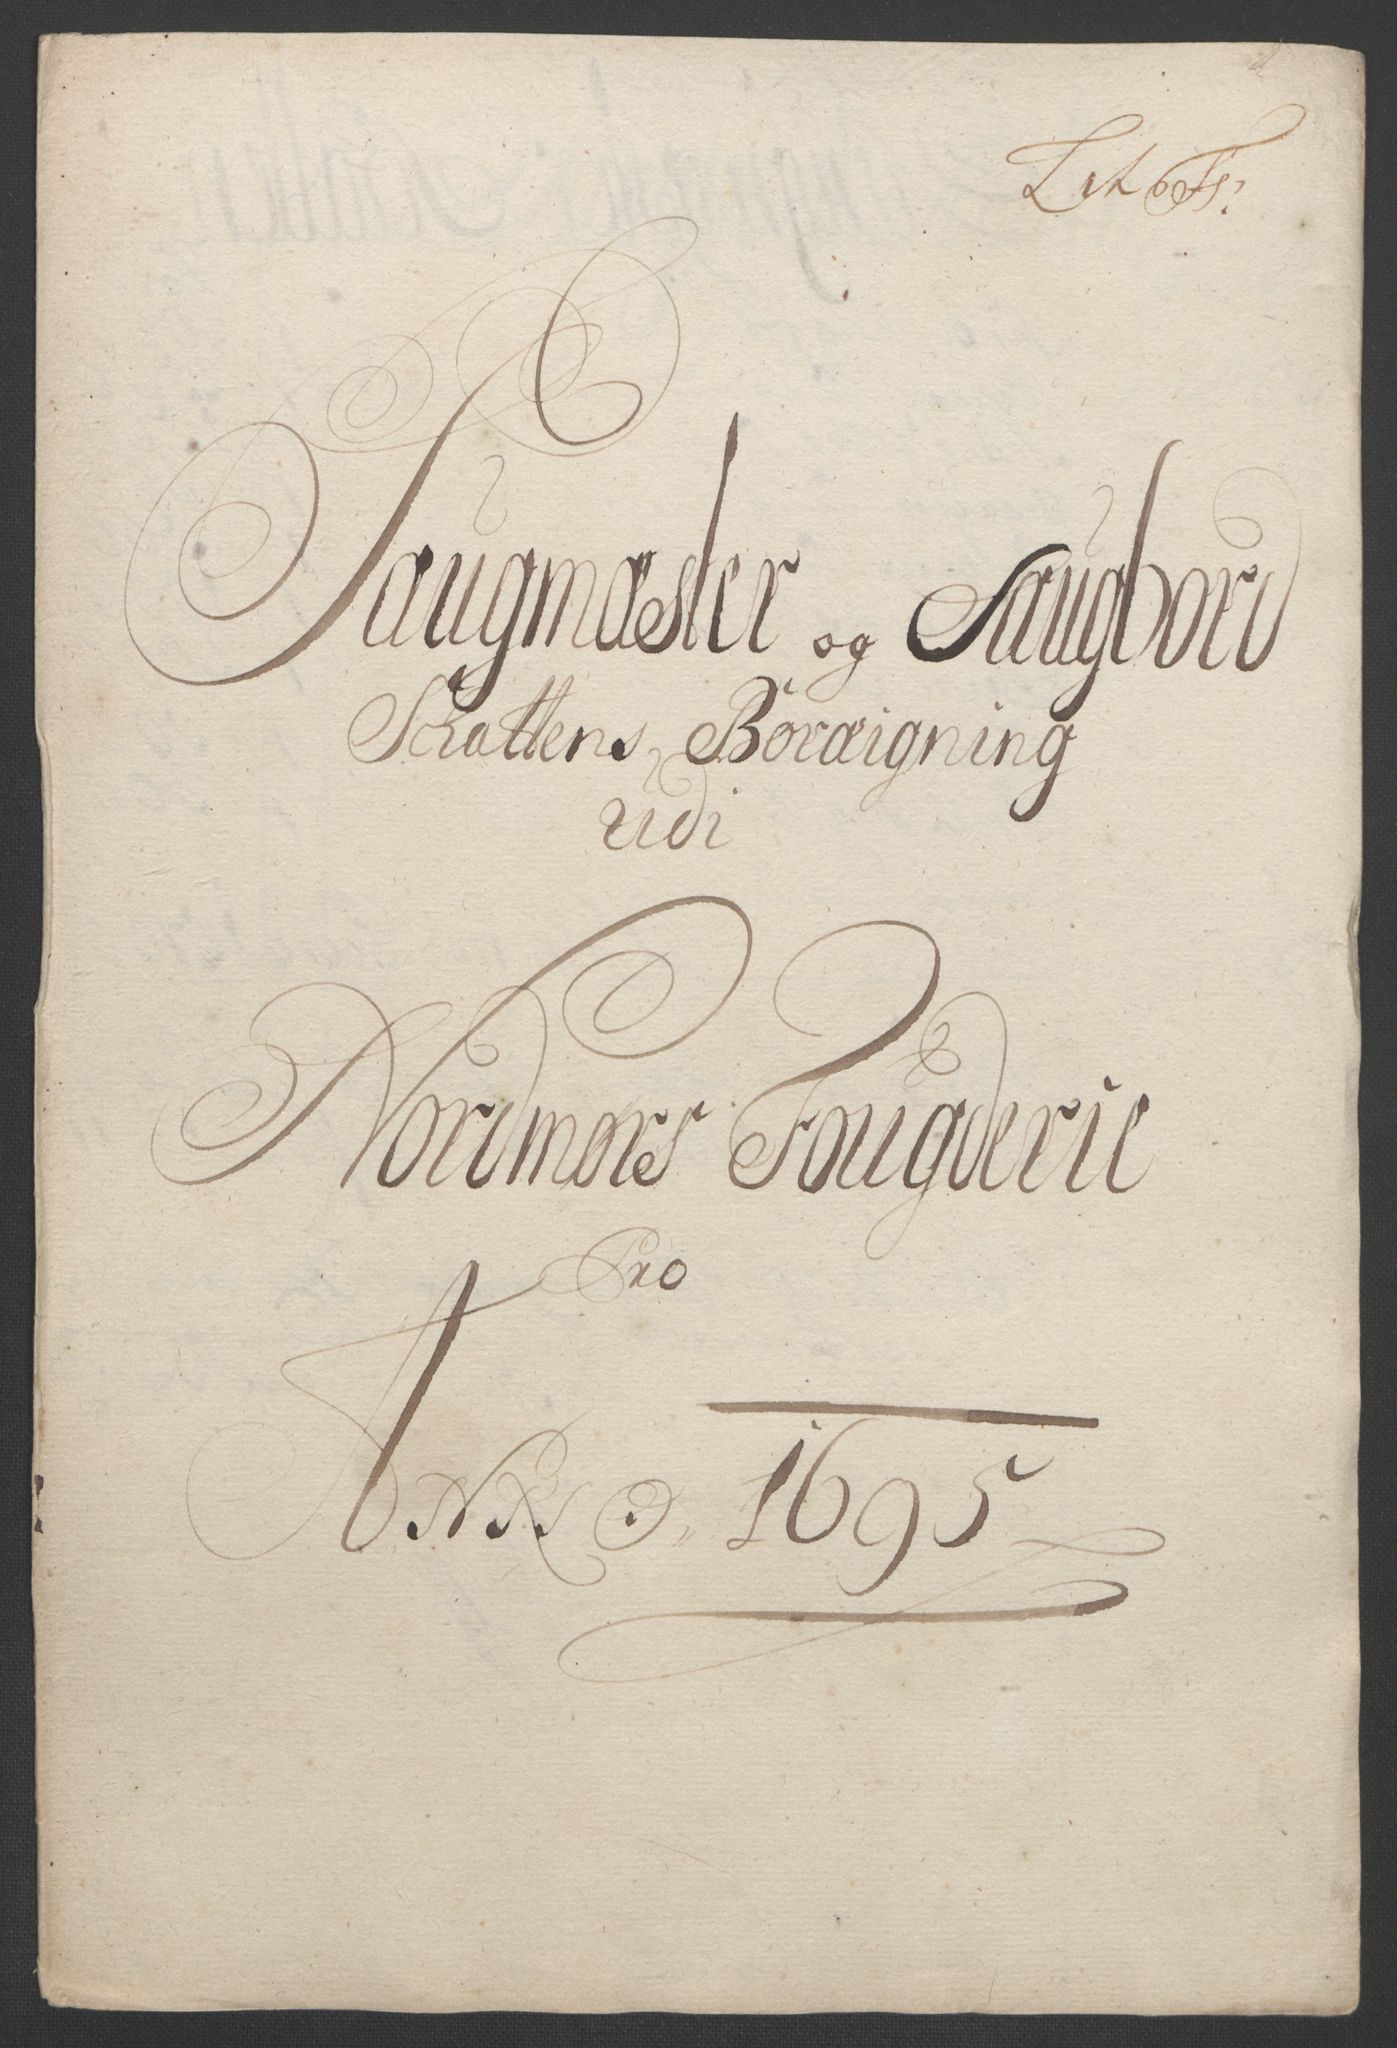 Lit F:
Saugmæster og Saugbord
Schattens Boræigning
udi
Nordmørs Fougderie
Pro
Anno 1695